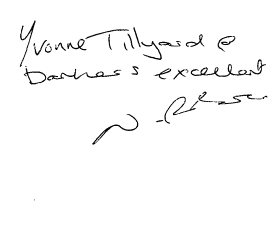 Yvonne Tillyard @
Darkness excellent